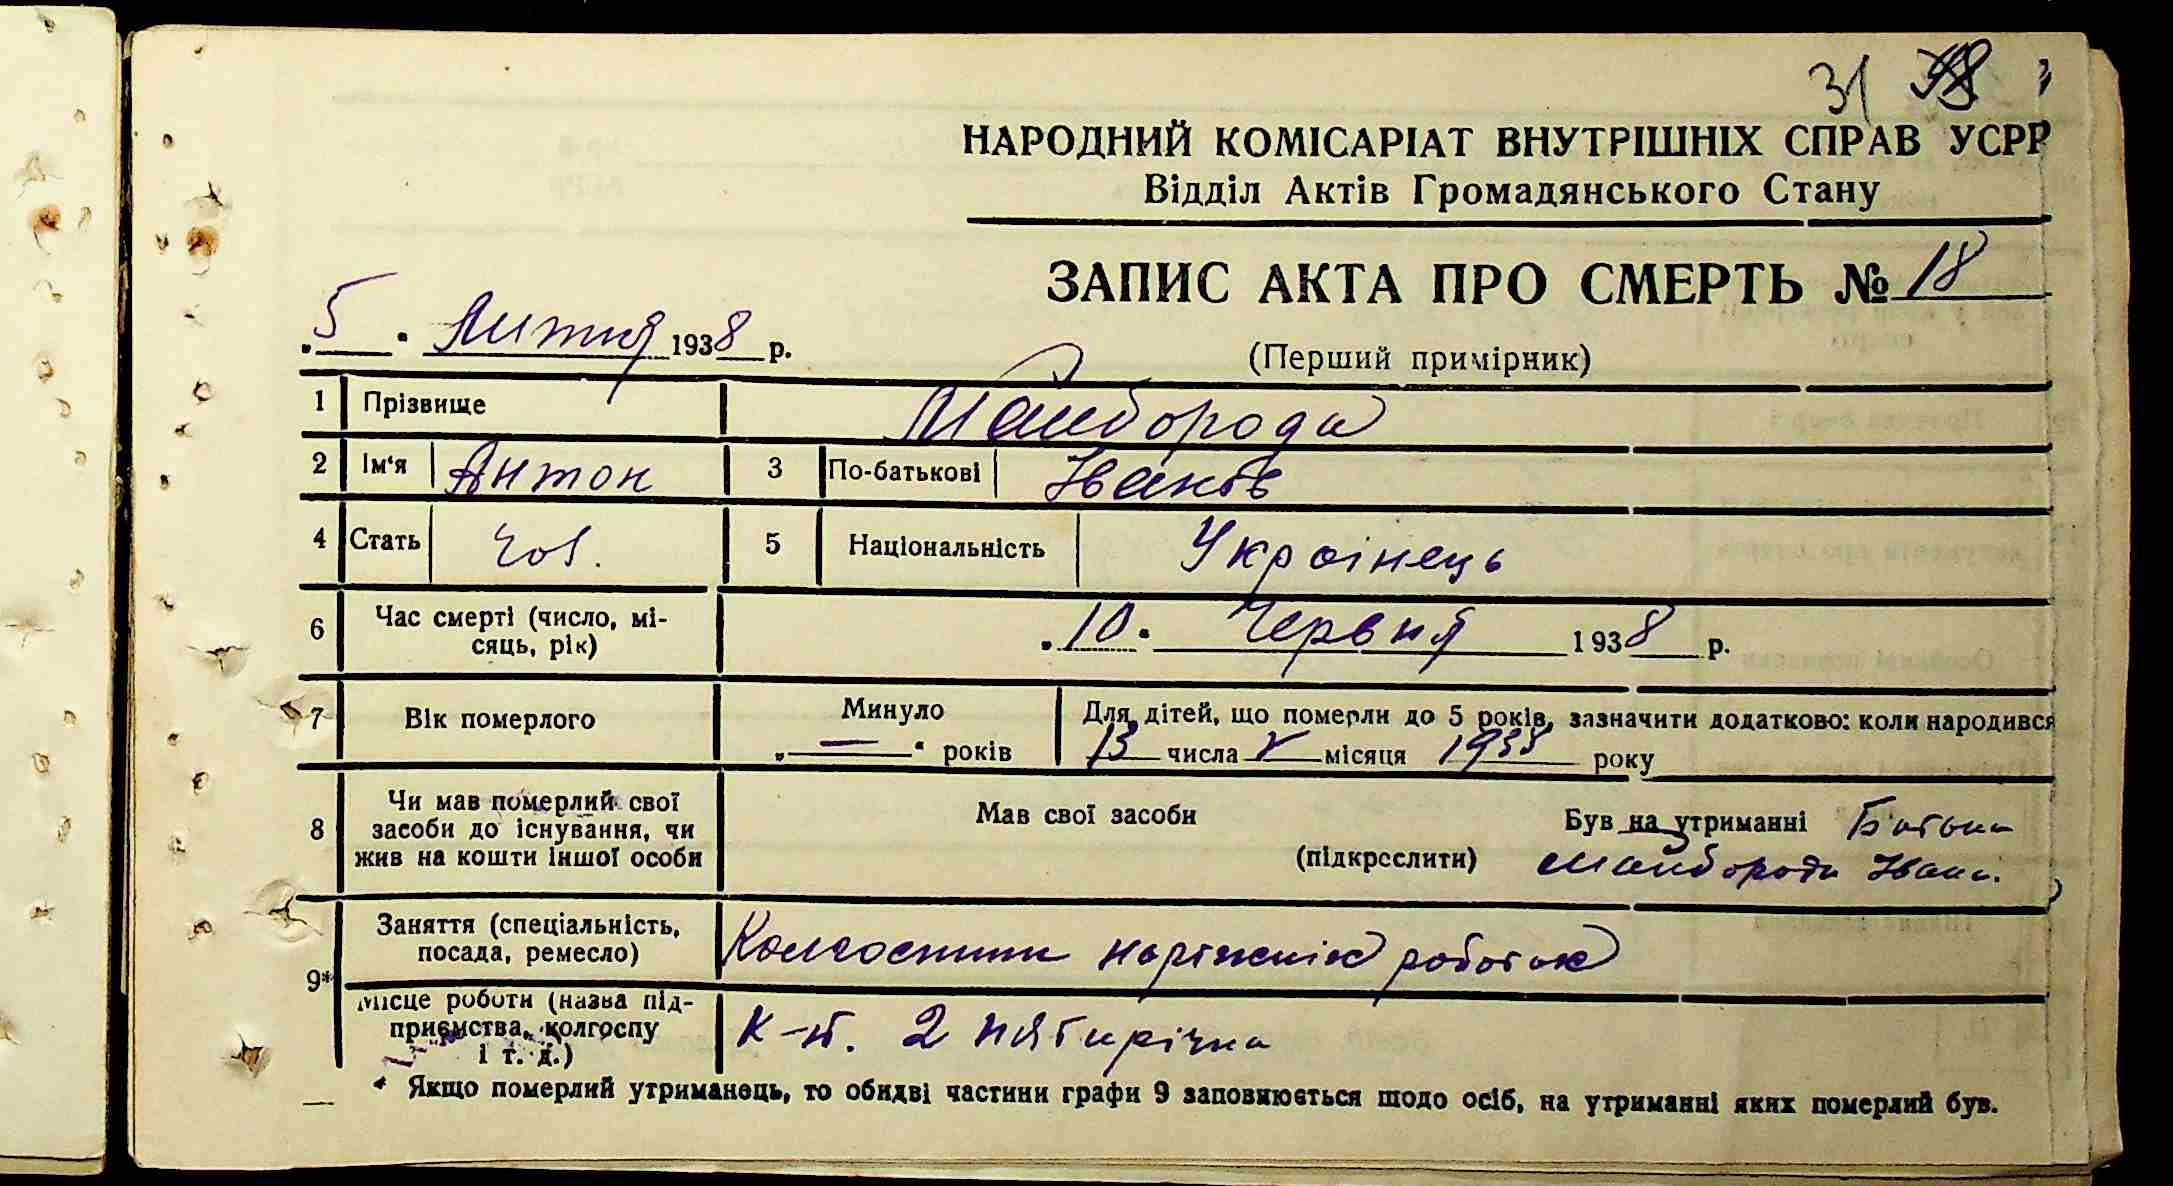 31 48
НАРОДНИЙ КОМІСАРІАТ ВНУТРІШНІХ СПРАВ УСРР
Відділ Актів Громадянського Стану
ЗАПИС АКТА ПРО СМЕРТЬ № 18
„5“ Липня 1938 р.
(Перший примірник)
1 Прізвище Майборода
2 Ім'я Антон 3 По-батькові Іванов
4 Стать чол. 5 Національність Українець
6 Час смерті (число, мі-
сяць, рік) „10“ Червня 1938 р.
7 Вік померлого Минуло „—“ років Для дітей, що померли до 5 років, зазначити додатково: коли народився
13 числа V місяця 1938 року
8 Чи мав померлий свої
засоби до існування, чи
жив на кошти іншої особи
Мав свої засоби (підкреслити) Був на утриманні Батька
Майборода Іван.
9* Заняття (спеціальність,
посада, ремесло) Колгоспник роботах
Місце роботи (назва під-
приємства, колгоспу
і т. д.) К-п. 2 пятирічка
* Якщо померлий утриманець, то обидві частини графи 9 заповнюється щодо осіб, на утриманні яких померлий був.